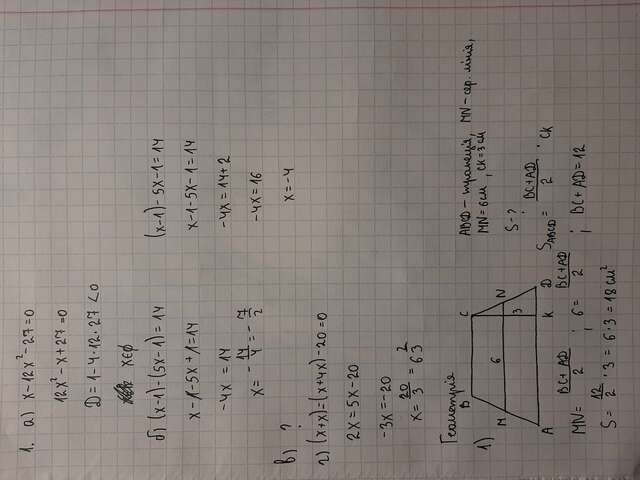 1. а) x-12x²-27=0
12x²-x+27=0
D=1-4·12·27<0
x∈∅
б) (x-1)-(5x-1)=14
x-1-5x+1=14
-4x=14
x=-14/4=-7/2
(x-1)-5x-1=14
x-1-5x-1=14
-4x=14+2
-4x=16
x=-4
в) ?
г) (x+x)=(x+4x)-20=0
2x=5x-20
-3x=-20
x=20/3=6 2/3
Геометрія
1)
B C
M 6 N
3
A K D
ABCD-трапеція, MN-сер. лінія,
MN=6см, CK=3см
S-?
S_ABCD=(BC+AD)/2 · CK
MN=(BC+AD)/2 ; 6=(BC+AD)/2 ; BC+AD=12
S=12/2·3=6·3=18см²